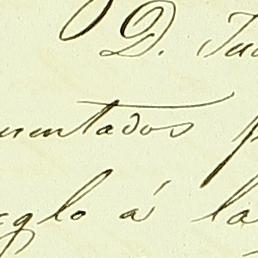 D. Jua
mentados p
eglo á la